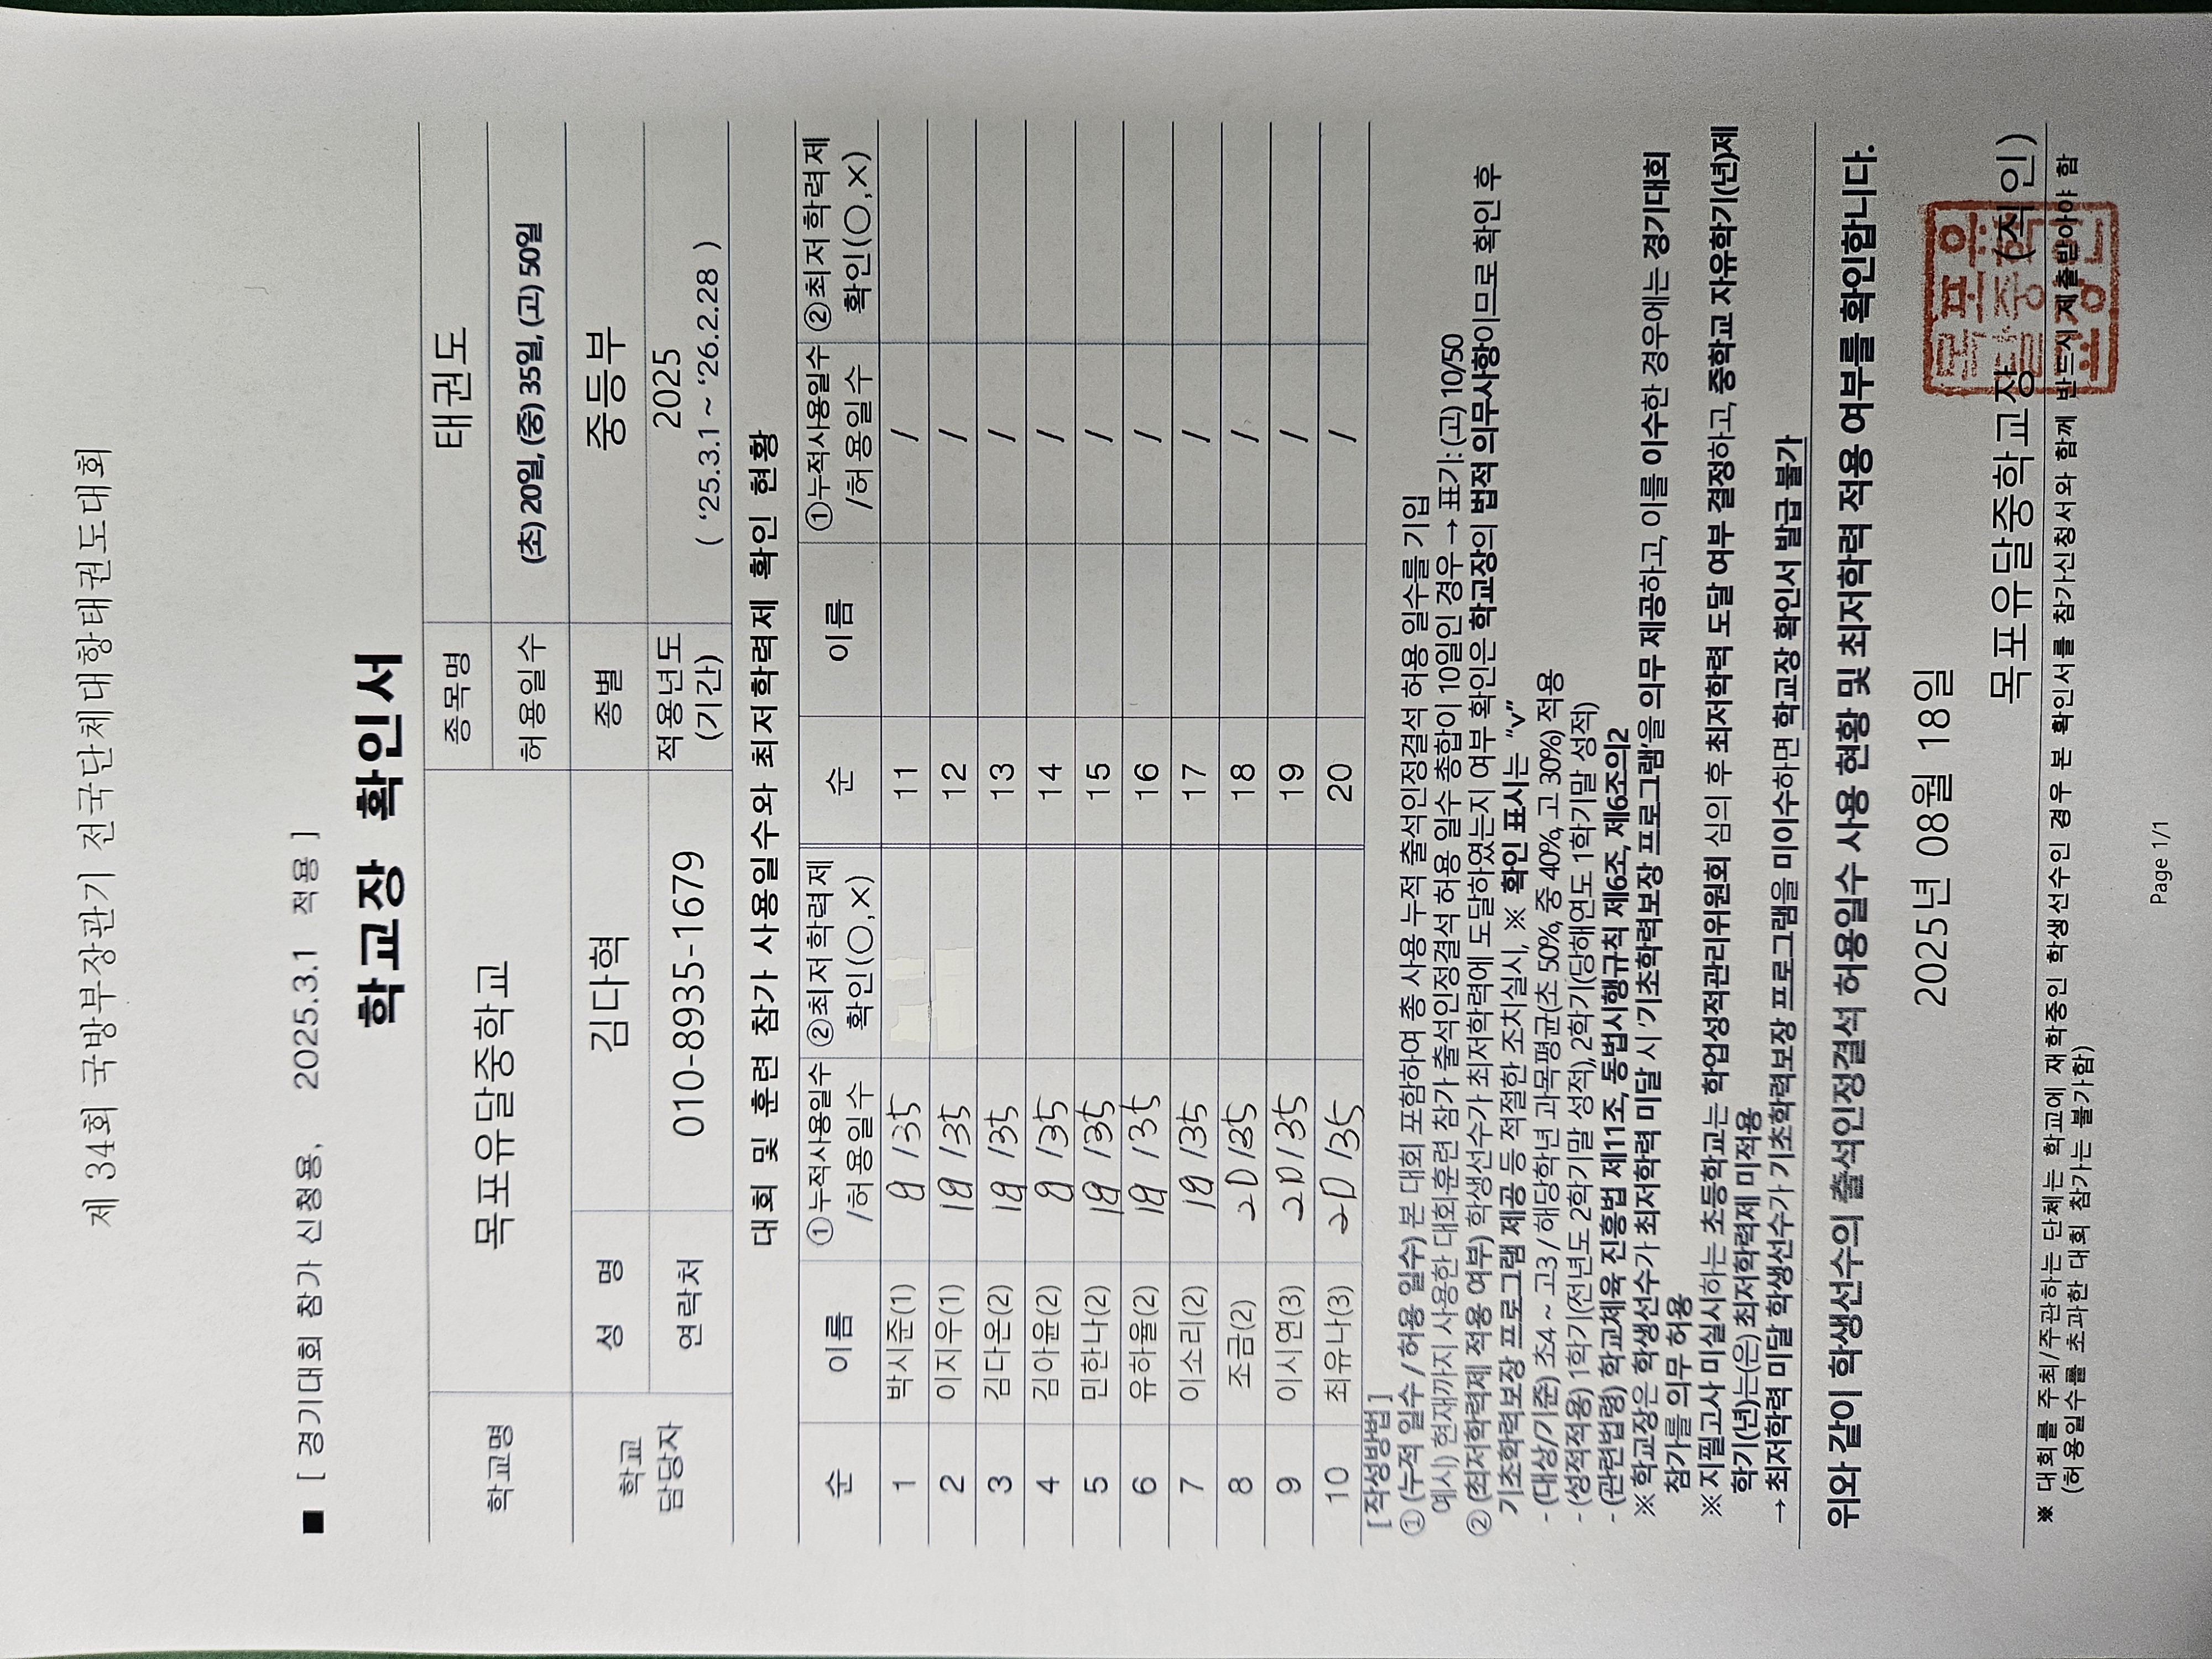 제 34회 국방부장관기 전국단체대항태권도대회
■ [ 경기대회 참가 신청용, 2025.3.1 적용 ]
학교장 확인서
학교명 목포유달중학교 종목명 태권도
허용일수 (초) 20일, (중) 35일, (고) 50일
학교 담당자 성 명 김다혁 종별 중등부
연락처 010-8935-1679 적용년도 (기간) 2025 ( '25.3.1 ~ '26.2.28 )
대회 및 훈련 참가 사용일수와 최저학력제 확인 현황
순 이름 ①누적사용일수 /허용일수 ②최저학력제 확인(○,×) 순 이름 ①누적사용일수 /허용일수 ②최저학력제 확인(○,×)
1 박시준(1) 9 /35 11 /
2 이지우(1) 19 /35 12 /
3 김다온(2) 19 /35 13 /
4 김아윤(2) 9 /35 14 /
5 민한나(2) 19 /35 15 /
6 유하율(2) 19 /35 16 /
7 이소리(2) 19 /35 17 /
8 조금(2) 20 /35 18 /
9 이시연(3) 20 /35 19 /
10 최유나(3) 20 /35 20 /
[ 작성방법 ]
① (누적 일수 / 허용 일수) 본 대회 포함하여 총 사용 누적 출석인정결석 허용 일수를 기입
예시) 현재까지 사용한 대회훈련 참가 출석인정결석 허용 일수 총합이 10일인 경우 → 표기: (고) 10/50
② (최저학력제 적용 여부) 학생선수가 최저학력에 도달하였는지 여부 확인은 학교장의 법적 의무사항이므로 확인 후
기초학력보장 프로그램 제공 등 적절한 조치실시, ※ 확인 표시는 "v"
- (대상/기준) 초4 ~ 고3 / 해당학년 과목평균(초 50%, 중 40%, 고 30%) 적용
- (성적적용) 1학기(전년도 2학기말 성적), 2학기(당해연도 1학기말 성적)
- (관련법령) 학교체육 진흥법 제11조, 동법시행규칙 제6조, 제6조의2
※ 학교장은 학생선수가 최저학력 미달 시 '기초학력보장 프로그램'을 의무 제공하고, 이를 이수한 경우에는 경기대회
참가를 의무 허용
※ 지필고사 미실시하는 초등학교는 학업성적관리위원회 심의 후 최저학력 도달 여부 결정하고, 중학교 자유학기(년)제
학기(년)는(은) 최저학력제 미적용
→ 최저학력 미달 학생선수가 기초학력보장 프로그램을 미이수하면 학교장 확인서 발급 불가
위와 같이 학생선수의 출석인정결석 허용일수 사용 현황 및 최저학력 적용 여부를 확인합니다.
2025년 08월 18일
목포유달중학교장 (직인)
※ 대회를 주최/주관하는 단체는 학교에 재학중인 학생선수인 경우 본 확인서를 참가신청서와 함께 반드시 제출받아야 함
(허용일수를 초과한 대회 참가는 불가함)
Page 1/1